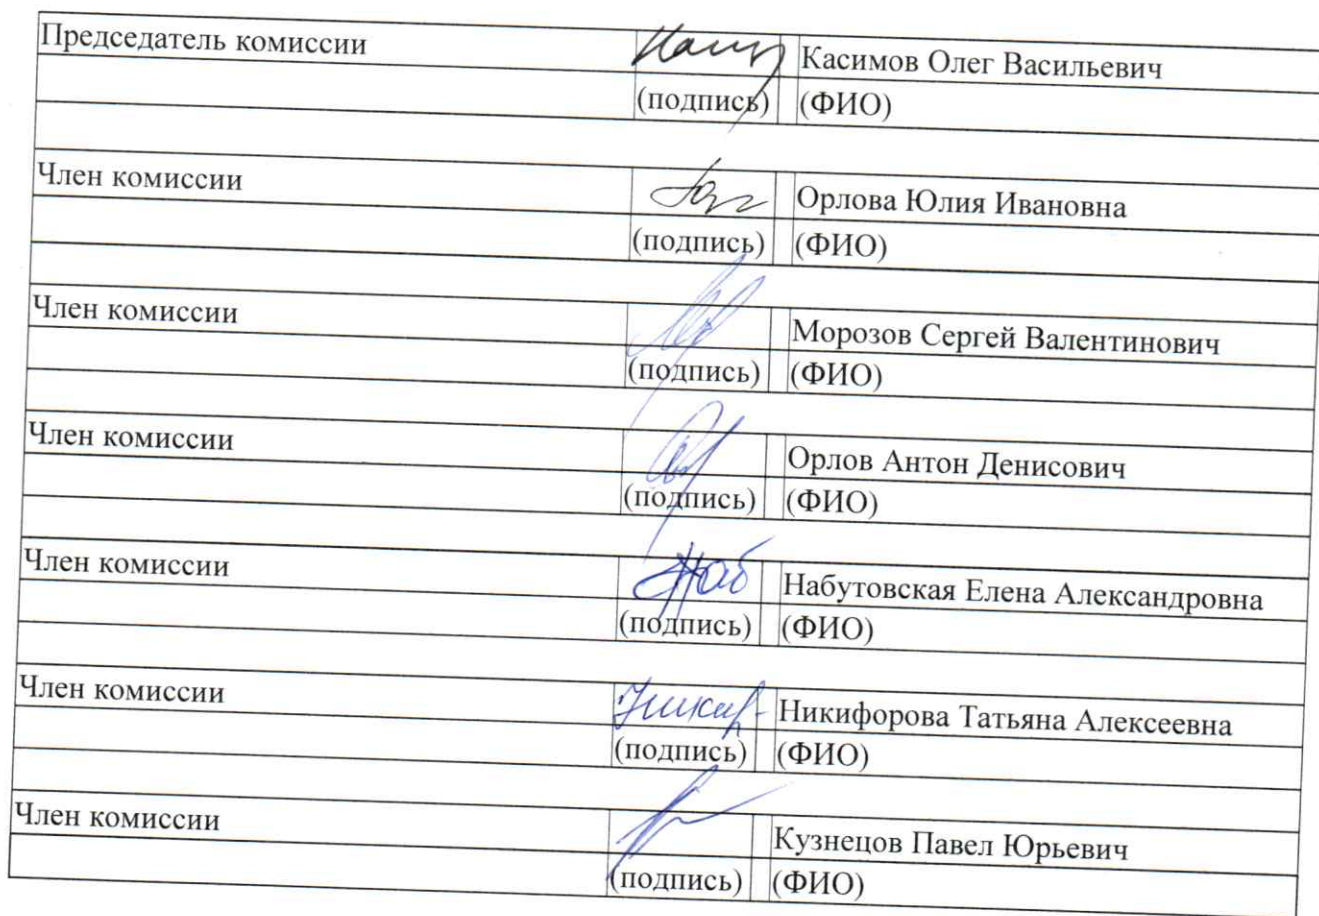 Председатель комиссии Касимов Олег Васильевич
(подпись) (ФИО)
Член комиссии Орлова Юлия Ивановна
(подпись) (ФИО)
Член комиссии Морозов Сергей Валентинович
(подпись) (ФИО)
Член комиссии Орлов Антон Денисович
(подпись) (ФИО)
Член комиссии Набутовская Елена Александровна
(подпись) (ФИО)
Член комиссии Никифорова Татьяна Алексеевна
(подпись) (ФИО)
Член комиссии Кузнецов Павел Юрьевич
(подпись) (ФИО)